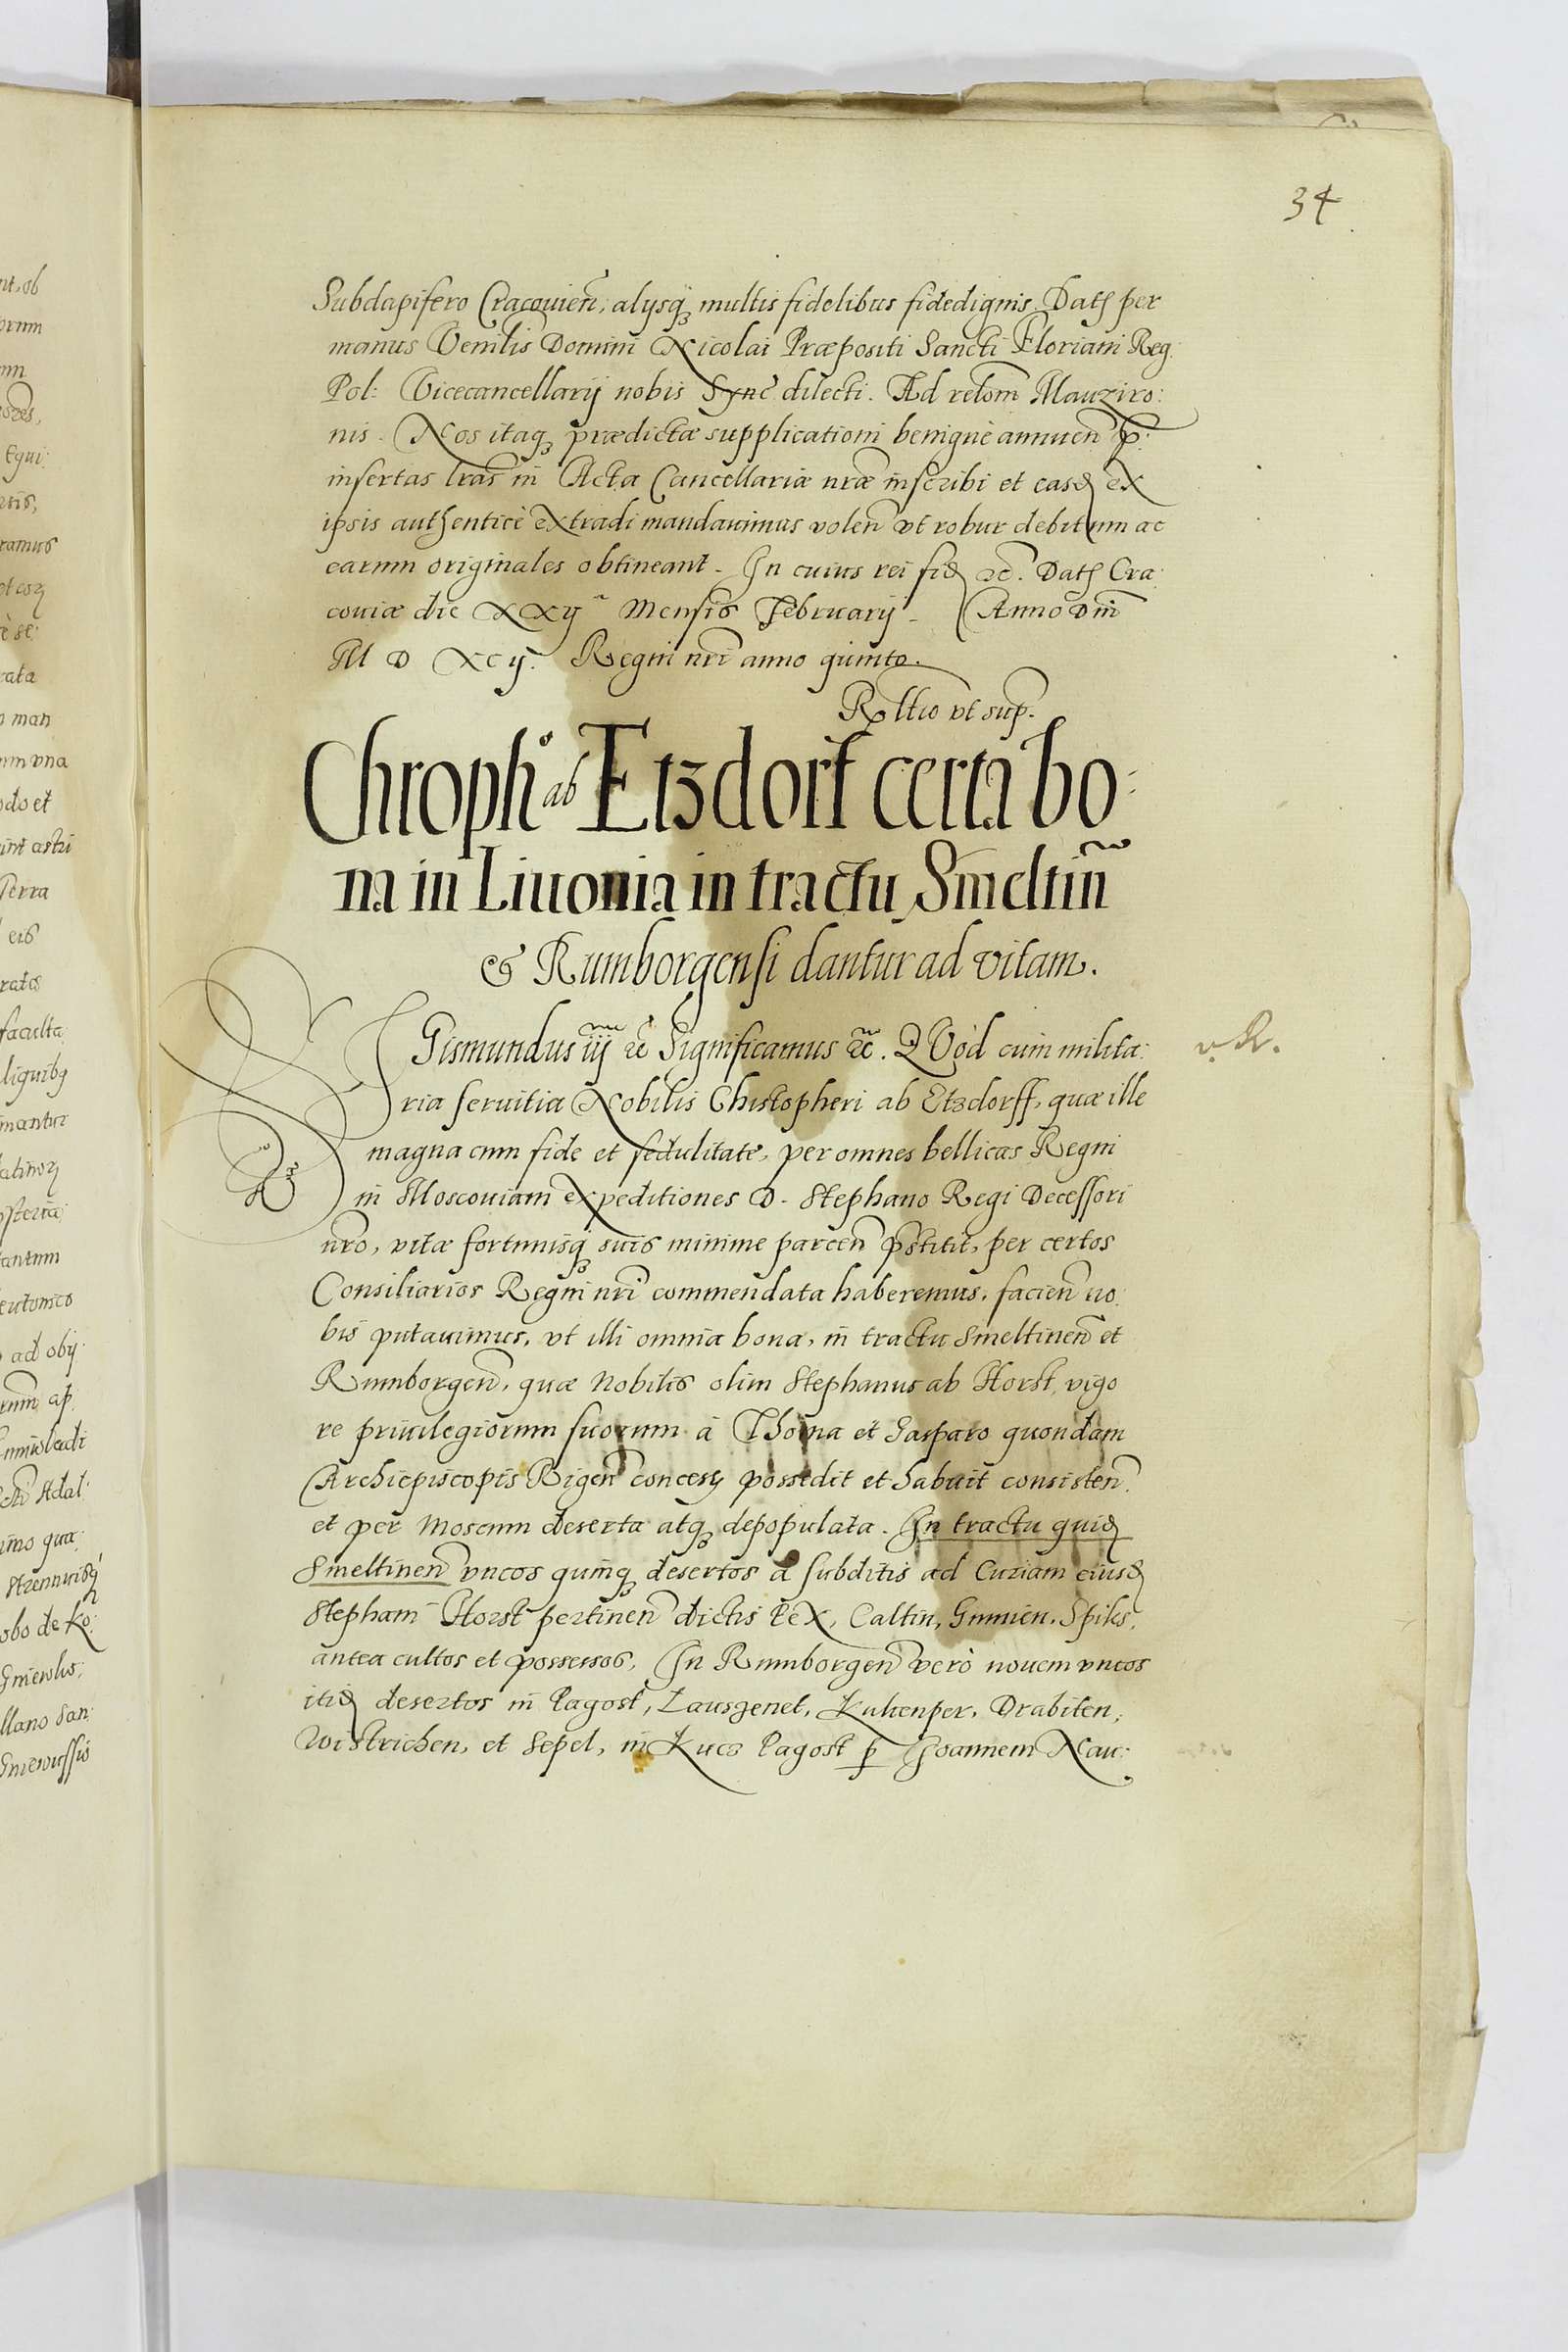 34
Subdapifero Cracouień, alysq multis fidelibus fidedignis. Dat per
manus Venilis Domini Nicolai Præpositi Sancti Floriani Reg.
Pol: Vicecancellarij nobis Sync dilecti. Ad relom Mauziro:
nis. Nos itaq prædictæ supplicationi benignè annuen p:
insertas lras in Acta Cancellariæ nræ inscribi et eas ex
ipsis authenticè extradi mandauimus volen vt robur debitum ac
earum originales obtineant. In cuius rei fid ec. Dat Cra:
couiæ die XXij Mensis Februarij. Anno Dni
M D XCij. Regni nri anno quinto.
Rltio vt sup.
Chroph ab Etzdorf certa bo:
na in Liuonia in tractu Smeltin
& Rumborgensi dantur ad vitam.
SIGismundus iij ec Significamus ec. QVòd cum milita:
v. R.
ria seruitia Nobilis Christopheri ab Etzdorff, quæ ille
magna cum fide et sedulitate, per omnes bellicas Regni
in Moscouiam expeditiones D. Stephano Regi Decessori
nro, vitæ fortunisq suis minime parcen pstitit, per certos
Consiliarios Regni nri commendata haberemus, facien no:
bis putauimus, vt illi omnia bona, in tractu Smeltinen et
Rumborgen, quæ Nobilis olim Stephanus ab Horst, vigo
re priuilegiorum suorum à Thoma et Jasparo quondam
Archiepiscopis Rigen concess possedit et habuit consisten
et per Moscum deserta atq depopulata. In tractu quid
Smeltinen vncos quinq desertos à subditis ad Curiam eiusd
Stephani Horst pertinen dictis Pex, Caltin, Gnmien, Spiks,
antea cultos et possessos, In Rumborgen verò nouem vncos
itid desertos in Pagost, Lausgenel, Kuhenper, Drabiten,
Wistrichen, et Sepel, in Kucs Pagost p Joannem Nau: